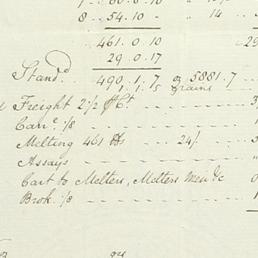 1 .. 60.0.10 " 10
8 .. 54.10 - " 14
461.0.10 29
29.0.17
Stand.d 490.1.7 @ 5881.7
1.1.5 grains
Freight 2 1/2 P Ct. 3
Can.e 1/8
Melting 461 lbs 24/.
Assays
Cart to Melters, Melters Men &c 0
Brok. 1/8 1